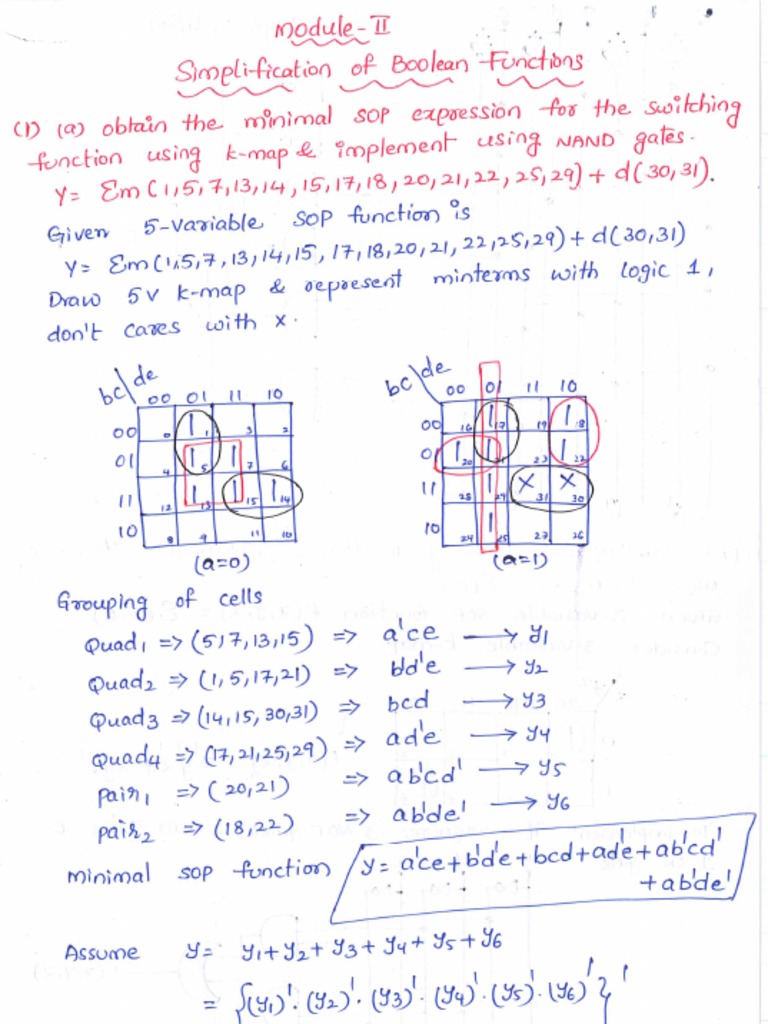 Module-II
Simplification of Boolean Functions
(1) (a) obtain the minimal SOP expression for the switching
function using k-map & implement using NAND gates.
Y= Σm(1,5,7,13,14,15,17,18,20,21,22,25,29)+d(30,31).
Given 5-variable SOP function is
Y= Σm(1,5,7,13,14,15,17,18,20,21,22,25,29)+d(30,31)
Draw 5V k-map & represent minterms with logic 1,
don't cares with x.
bc\de 00 01 11 10
00 0 1 1 3 2
01 4 1 5 1 7 6
11 12 1 13 1 15 1 14
10 8 9 11 10
(a=0)
bc\de 00 01 11 10
00 16 1 17 19 1 18
01 1 20 1 21 23 1 22
11 28 1 29 x 31 x 30
10 24 1 25 27 26
(a=1)
Grouping of cells
Quad1 => (5,7,13,15) => a'ce → y1
Quad2 => (1,5,17,21) => b'd'e → y2
Quad3 => (14,15,30,31) => bcd → y3
Quad4 => (17,21,25,29) => ad'e → y4
pair1 => (20,21) => ab'cd' → y5
pair2 => (18,22) => ab'de' → y6
Minimal SOP function y= a'ce+b'd'e+bcd+ad'e+ab'cd'
+ab'de'
Assume y= y1+y2+y3+y4+y5+y6
= {(y1)'.(y2)'.(y3)'.(y4)'.(y5)'.(y6)'}'